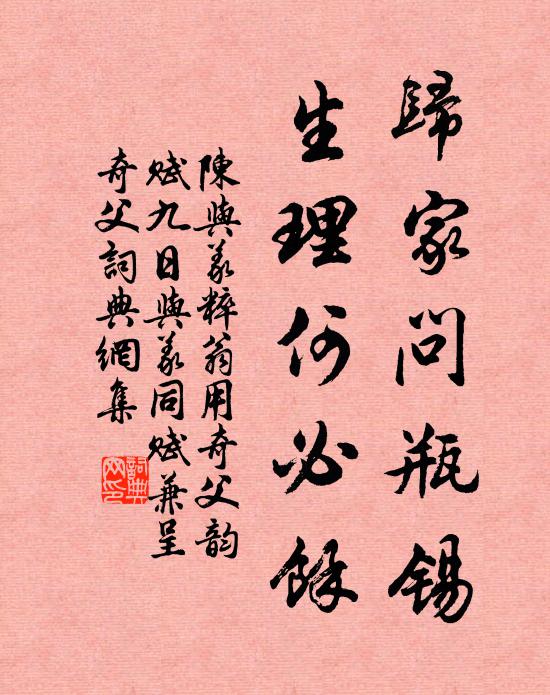 歸家問瓶錫
生理何必餘
陳與義粹翁用奇父韵
賦九日與義同賦兼呈
奇父詞典網集
詞典網印